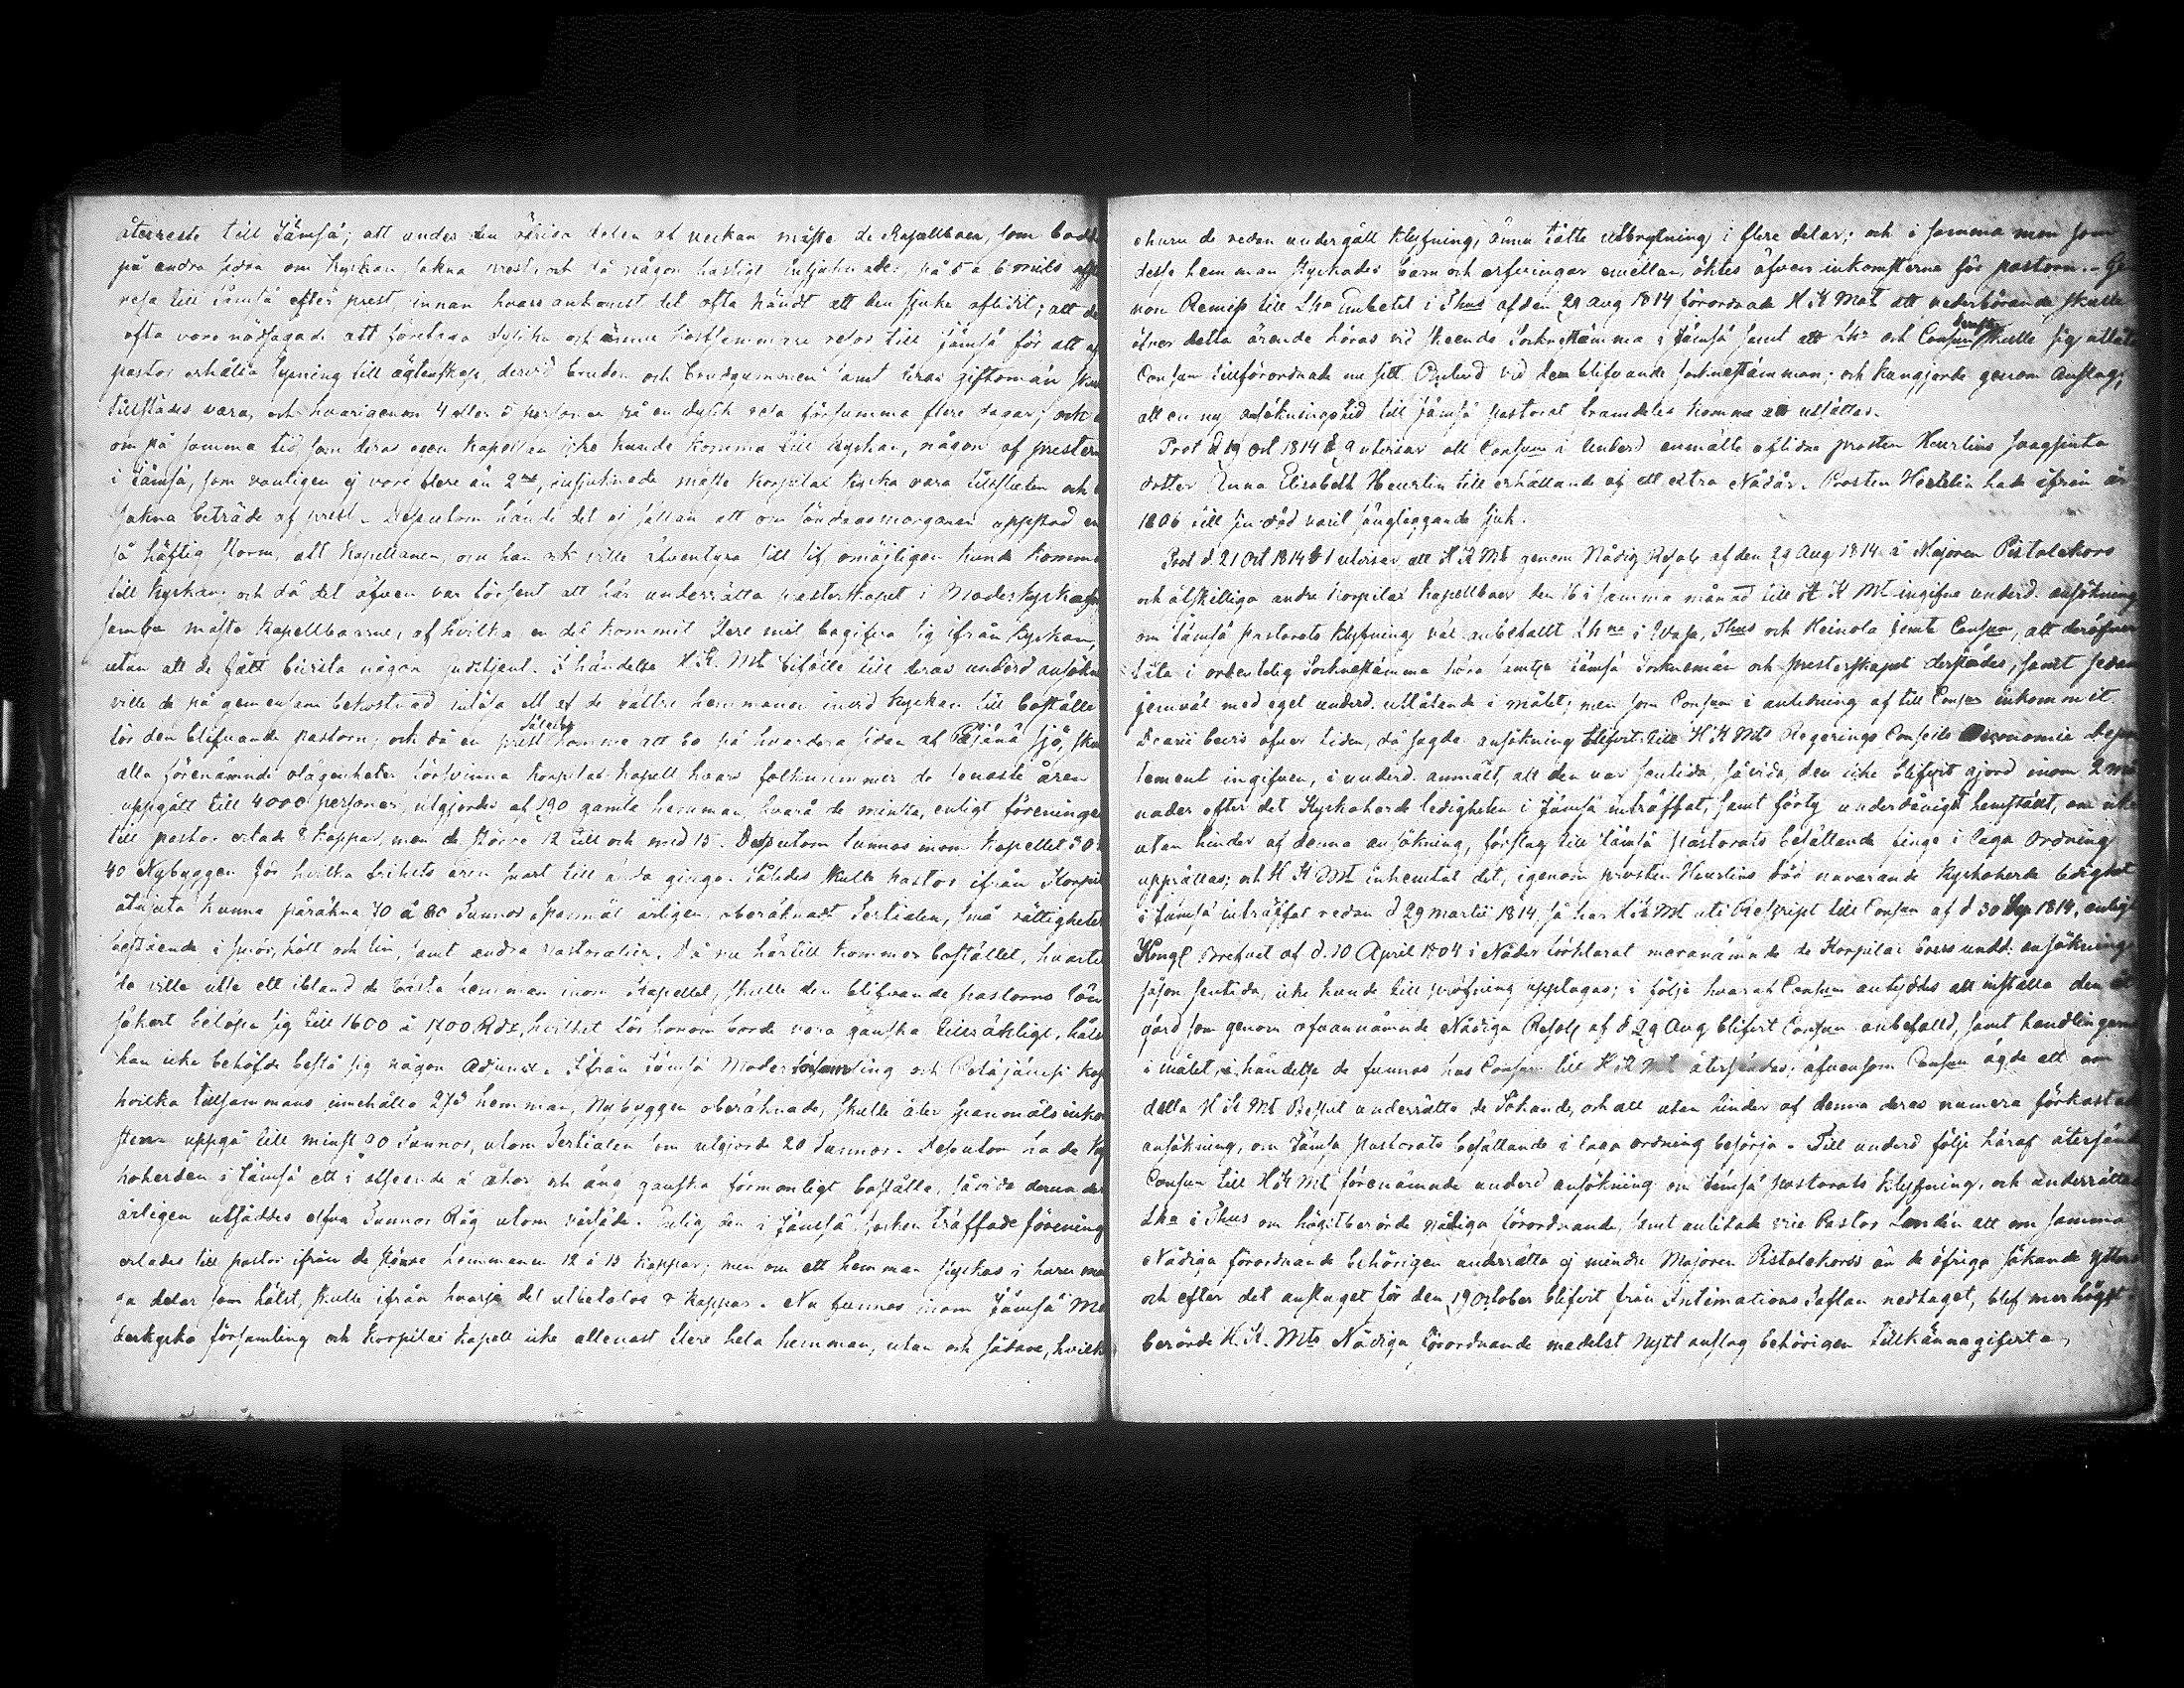 återreste till Jämsä; att under den öfriga delen af veckan måste de Kapellboer, som bodde
på andra sidan om Kyrkan, sakna prest, och då någon hastigt insjuknade, på 5 a 6 mils
resa till Jämsä efter prest, innan hvars ankomst det ofta händt att den sjuke aflidit; att de
ofta voro nödsagade att företaga dylika och ännu kostsammare resor till Jämsä för att af
pastor erhålla lysning till ägtenskap, dervid bruden och brudgummen samt deras giftomän
tillstädes vara, och hvarigenom 4 eller 5 personer på en dylik resa försumma flere dagar; och
om på samma tid som deras egen kapellan icke kunde komma till kyrkan, någon af presterna
i Jämsä, som vanligen ej voro flere än 2ne, insjuknade måste Korpilax kyrka vara tillsluten och
sakna biträde af prest. Dessutom hände det ej sällan att om söndagsmorgonen uppstod en
så häftig storm, att Kapellanen, om han ock ville äfventyra sitt lif, omöjligen kunde komma
till kyrkan, och då det äfven var försent att här underrätta presterskapet i Moderkyrkan
måste Kapellboerne, af hvilka en del kommit flere mil, begifva sig ifrån kyrkan,
utan att de fått bivista någon Gudstjenst. I händelse H. K. Mt biföll till deras underd ansökn
ville de på gemensam bekostnad inlösa ett af de bättre hemmanen invid kyrkan till boställe
för den blifvande pastorn, och då en prest således komme att bo på hvardera sidan af Päjänä sjö, skulle
alla förenämnde olägenheter försvinna. Korpilax kapell hvars folknummer de senaste åren
uppgått till 4000 personer, utgjordes af 190 gamla hemman, hvaraf de minsta, enligt föreningen
till pastor erlade 8 kappar, men de större 12 till och med 15. Dessutom funnos inom kapellet 30
40 Nybyggen för hvilka frihets åren snart till ända gingo. Således skulle Pastor ifrån Korpilax
kunna påräkna 70 à 80 Tunnor Spanmål årligen oberäknadt Tertialen, små rättigheter
bestående i smör, kött och lin, samt andra pastoralier. Då nu härtill kommer bostället, hvartill
de ville utse ett ibland de bästa hemman inom Kapellet, skulle den blifvande pastorns lön
säkert belöpa sig till 1600 à 1700 Rdr, hvilket för honom borde vara ganska tillräkligt, hälst
han icke behöfde bestå sig någon Adjunct. Ifrån Jämsä Moderförsamling och Petäjävesi kap
hvilka tillsammans innehålla 275 hemman, Nybyggen oberäknade, skulle åter spanmålsinkom
sterna uppgå till minst 90 Tunnor, utom Tertialen som utgjorde 20 Tunnor. Dessutom hade Kyr
koherden i Jämsä ett i afseende å åker och äng ganska förmonligt boställe, såvida derunder
årligen utsåddes elfva Tunnor Råg utom vårsäde. Enlig den i Jämsä socken träffade förening
erlades till pastor ifrån de större hemmanen 12 à 15 kappar; men om ett hemman styckas i huru mån
ga delar som hälst, skulle ifrån hvarje del utbetalas 8 kappar. Nu funnos inom Jämsä Mo
derkyrko församling och Korpilax kapell icke allenast flere hela hemman, utan och sådane, hvilka
ehuru de redan undergått klyfning, ännu tålte utbrytning i flere delar; och i samma mon som
desse hemman styckades barn och arfvingar emellan, öktes äfven inkomsterna för pastorn. Ge
nom Remiss till Lhs Embetet i Thus af den 29 Aug 1814 förordnade H K Mt att vederbörande skulle
öfver detta ärende höras vid skeende Sockenstämma i Jämsä samt att Lhs och Consm derefter skulle sig utlåta
Consm tillförordnade nu sitt Ombud vid den blifvande sockenstämman; och kungjorde genom Anslag,
att en ny ansökningstid till Jämsä pastorat framdeles komme att utsättas.
Prot d 19 Oct 1814 § 9 utvisar att Consm i Underd anmälte aflidne prosten Heurlins
dotter Anna Elisabeth Heurlin till erhållande af ett extra Nådår. Prosten Heurlin hade ifrån år
1806 till sin död varit sängliggande sjuk.
Prot d. 21 Oct 1814 § 1 utvisar, att H K Mt genom Nådig Resol. af den 29 Aug 1814 å Majoren Pistolekors
och åtskilliga andra Korpilax kapellboer den 16 i samma månad till H K Mt ingifna underd. ansökning
om Jämsä pastorats klyfning väl anbefallt Lhne i Wasa, Thus och Heinola jemte Consm, att deröfver
låta i ordentelig Sockenstämma höra samtl Jämsä Sockenmän och presterskapet derstädes, samt sedan
jemväl med eget underd. utlåtande i målet; men som Consm i anledning af till Consm inkommit
öfver tiden, då sagde ansökning blifvit till H K Mts Regerings Conseils Oeconomie Depar
tement ingifven, i underd. anmält, att den var sentida, såvida den icke blifvit gjord inom 2 må
nader efter det Kyrkoherde ledigheten i Jämsä inträffat, samt förty underdånigst hemstält, om icke
utan hinder af denna ansökning, förslag till Jämsä pastorats besättande finge i laga ordning
upprättas; och H K Mt inhemtat det, igenom prosten Heurlins död nuvarande Kyrkoherde ledighet
i Jämsä inträffat redan d 29 Martii 1814, så har H K Mt uti Rescript till Consm af d 30 Sep 1814, enligt
Kongl Brefvet af d. 10 April 1804 i Nåder förklarat meranämnde de Korpilax boers undd. ansökning
såsom sentida, icke kunde till pröfning upptagas; i följe hvaraf Consm antyddes att inställa den åt
gärd som genom ofvannämnde Nådiga Resol. af d 29 Aug blifvit Consm anbefalld, samt handlingarne
i målet, i händelse de funnos hos Consm till H K Mt återsändas; äfvensom Consm ägde att om
detta H K Mt Beslut underrätta de Sökande, och att utan hinder af denna deras numera förkastade
ansökning, om Jämsä Pastorats besättande i laga ordning besörja. Till underd följe häraf återsände
Consm till H K Mt förenämnde underd ansökning om Jämsä pastorats klyfning, och underrättade
Lhs i Thus om högstberörde nådiga förordnande, samt anlitade vice Pastor Londén att om samma
Nådiga förordnande behörigen underrätta ej mindre Majoren Pistolekors än de öfriga sökande
och efter det anslaget för den 19 October blifvit från Intimations Taflan nedtaget, blef merhögst
berörde H. K. Mts Nådiga förordnande medelst nytt anslag behörigen tillkännagifvit.